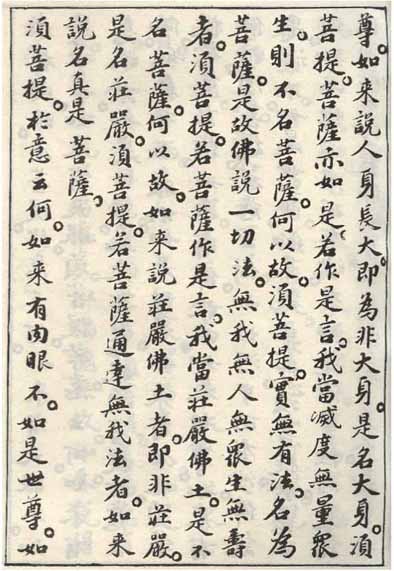 尊。如来說人身長大。即為非大身。是名大身。須
菩提。菩薩亦如是。若作是言。我當滅度無量眾
生。則不名菩薩。何以故。須菩提。實無有法。名為
菩薩。是故佛說一切法。無我無人無眾生無壽
者。須菩提。若菩薩作是言。我當莊嚴佛土。是不
名菩薩。何以故。如来說莊嚴佛土者。即非莊嚴。
是名莊嚴。須菩提。若菩薩通達無我法者。如来
說名真是菩薩。
須菩提。於意云何。如来有肉眼不。如是世尊。如